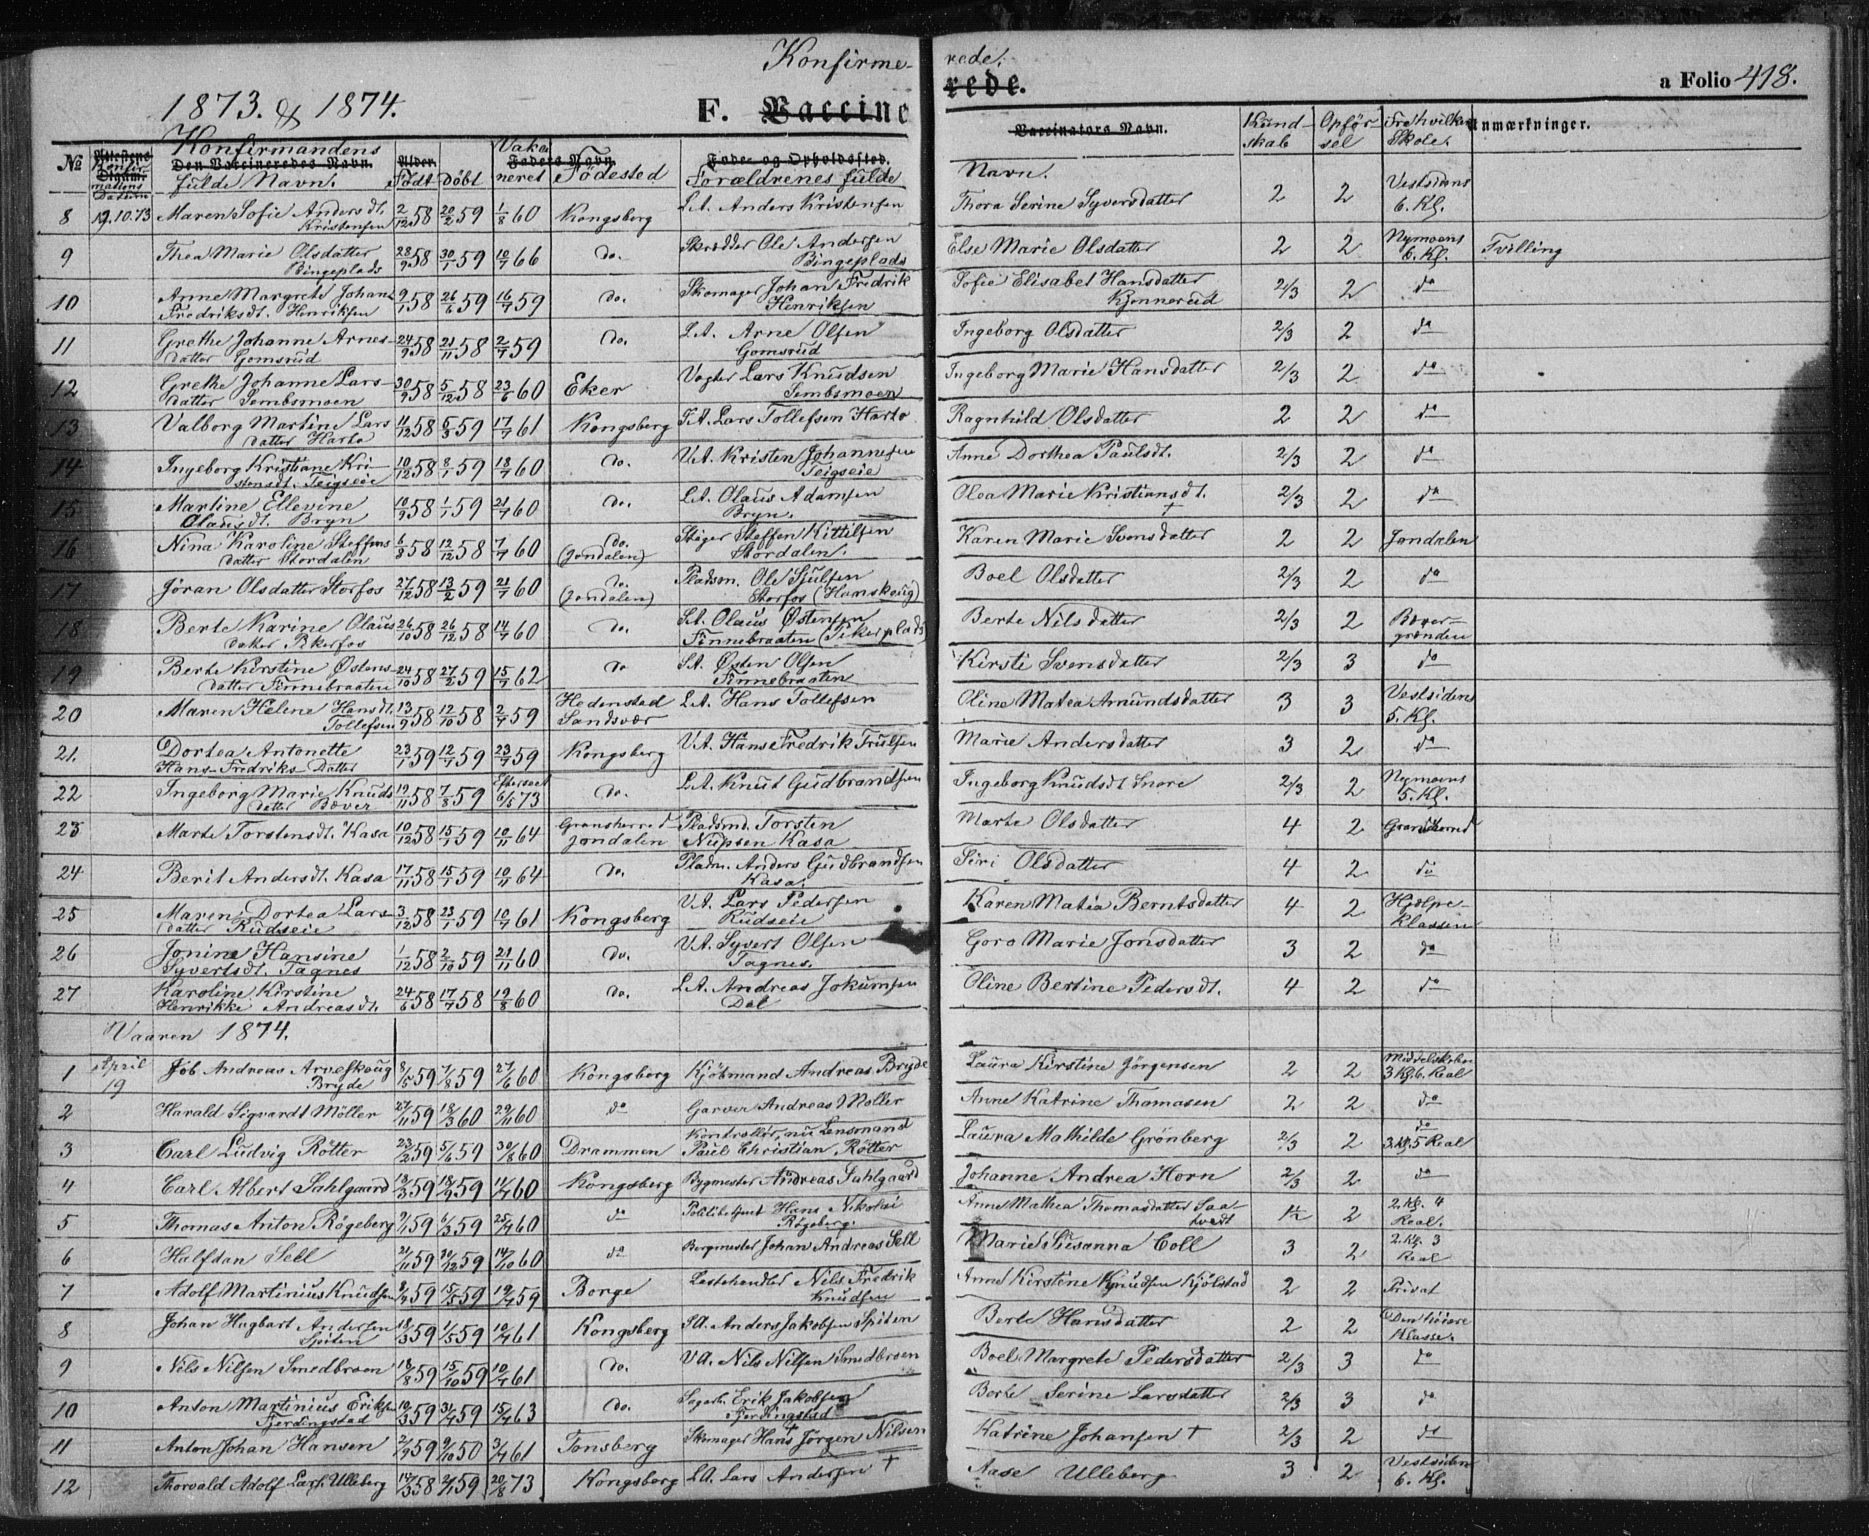 Konfirme- rede.
1873. & 1874. F. Vaccine rede. a Folio 418.
№ Attestens Datum Konfirmandens fulde Navn. Født døbt Vakcineret Fødested Forældrenes fulde Navn. Kundskab Opførsel Fra hvilken Skole. Anmærkninger.
8 19.10.73 Maren Sofie Andersdt. Kristensen 2/12 58 20/2 59 1/8 60 Kongsberg L.A. Anders Kristensen Thora Serine Syversdatter 2 2 Vestsidens 6. Kl.
9 Thea Marie Olsdatter Bingeplads 28/9 58 30/1 59 10/7 66 do. Skrædder Ole Andersen Bingeplads Else Marie Olsdatter 2 2 Nymoens 6. Kl. Tvilling
10 Anne Margrete Johan Fredriksdt. Henriksen 9/1 58 26/6 59 16/7 59 do. Skomager Johan Fredrik Henriksen Sofie Elisabet Hansdatter Kjønnerud 2/3 2 do
11 Grethe Johanne Arnesdatter Gomsrud 24/9 58 21/11 58 2/7 59 do. L.A. Arne Olsen Gomsrud Ingeborg Olsdatter 2/3 2 do
12 Grethe Johanne Larsdatter Sembsmoen 30/9 58 5/12 58 23/6 60 Eker Vogter Lars Knudsen Sembsmoen Ingeborg Marie Hansdatter 2/3 2 do
13 Valborg Martine Larsdatter Harto 11/12 58 6/3 59 17/7 61 Kongsberg Lars Tollefsen Harto Ragnhild Olsdatter 2 2 do
14 Ingeborg Kristiane Kristensdt. Teigseie 10/12 58 8/1 59 18/7 60 do. V.A. Kristen Johannesen Teigseie Anne Dorthea Paulsdt. 2/3 2 do
15 Martine Ellevine Olausdt. Bryn 10/9 58 1/1 59 21/7 60 do. L.A. Olaus Adamsen Bryn. Olea Marie Kristiansdt. † 2/3 2 do
16 Nina Karoline Steffensdatter Stordalen 6/8 58 12/12 58 7/7 60 do. (Jondalen) Stiger Steffen Kittilsen Stordalen. Karen Marie Svensdatter 2 2 Jondalen
17 Jøran Olsdatter Storfos 27/12 58 13/2 59 21/7 60 do. (Jondalen) Pladsm. Ole Sjulsen Storfos (Hamskoug) Boel Olsdatter 2/3 2 do
18 Berte Karine Olausdatter 26/10 58 26/12 58 14/7 60 do. Olaus Østensen Finnebraaten Berte Nilsdatter 2/3 2 Bævergrenden
19 Berte Kirstine Østensdatter Finnebraaten 24/10 58 27/2 59 15/7 62 do Østen Olsen Finnebraaten Kirsti Svensdatter 2/3 3 do
20 Maren Helene Hansdt. Tollefsen 13/9 58 12/10 58 2/7 59 Hedenstad Sandsvær L.A. Hans Tollefsen Oline Matea Amundsdatter 3 3 Vestsidens 5. Kl.
21. Dortea Antonette Hans-Fredriks-Datter 23/1 59 12/7 59 23/7 59 Kongsberg V.A. Hans Fredrik Trulsen Marie Andersdatter 3 2 do
22 Ingeborg Marie Knudsdatter Bæver 19/11 58 7/8 59 Efterseet 6/5 73 do. L.A. Knut Gudbrandsen Ingeborg Knudsdt Snore 2/3 2 Nymoens 5. Kl.
23 Marte Torstensdt. Kasa 10/12 58 15/1 59 10/11 64 Gransherred Jondalen Pladsmd. Torsten Nilsen Kasa Marte Olsdatter 4 2 Gransherred
24 Berit Andersdt. Kasa 17/11 58 15/1 59 10/11 64 do. Pladsm. Anders Gudbrandsen Kasa. Siri Olsdatter 4 2 do
25 Maren Dortea Larsdatter Rudseie 3/12 58 23/1 59 10/7 61 Kongsberg V.A. Lars Pedersen Rudseie Karen Matea Berntsdatter 4 2 Hjelpeklassen
26 Jonine Hansine Syvertsdt. Tagnes 1/12 58 2/10 59 21/11 60 do. V.A. Syvert Olsen Tagnes. Goro Marie Jonsdatter 3 2 do
27 Karoline Kirstine Henrikke Andreasdt. 24/6 58 17/7 58 19/8 60 do. L.A. Andreas Jokumsen Dal Oline Bertine Pedersdt. 4 2 do
Vaaren 1874.
1 April 19 Job Andreas Arneskoug Bryde 8/5 59 7/8 59 27/6 60 Kongsberg Kjøbmand Andreas Bryde Laura Kirstine Jørgensen 2 2 Middelskolen 3 Kl. 6. Real
2 Harald Sigvardt Møller 27/11 59 18/3 60 29/11 60 do Garver Andreas Møller Anne Katrine Thomasen 2 2 do
3 Carl Ludvig Røtter 23/2 59 5/6 59 30/8 60 Drammen Kontrollør, nu Lensmand Paul Christian Røtter Laura Mathilde Grønberg 2/3 2 do 3.Kl. 5 Real
4 Carl Albert Sahlgaard 13/3 59 18/9 59 11/7 60 Kongsberg Bygmester Andreas Sahlgaard Johanne Andrea Horn 2/3 2 do
5 Thomas Anton Røgeberg 9/1 59 6/3 59 25/7 60 do Politibetjent Hans Nikolai Røgeberg. Anne Mathea Thomasdatter Saatvedt 1½ 2 2. Kl. 4 Real.
6 Halfdan Sell 21/11 59 59 14/10 60 do Bergmester Johan Andreas Sell Marie Susanna Coll 3 2 2. Kl. 3 Real
7 Adolf Martinius Knudsen 59 59 19/7 59 Borge Lastehandler Nils Fredrik Knudsen Anne Kirstine Knudsen Kjølstad 2 2 Privat
8 Johan Hagbart Andersen Spiten 18/3 59 1/5 59 10/7 61 Kongsberg Anders Jakobsen Spiten Berte Hansdatter 2 2 Den høiere Klasse.
9 Nils Nilsen Smedbroen 18/8 59 15/10 59 10/7 61 do. V.A. Nils Nilsen Smedbroen Boel Margrete Pedersdatter 2/3 3 do
10 Anton Martinius Eriksen Fjerdingstad 10/3 59 31/7 59 15/7 63 do. Sagarb. Erik Jakobsen Fjerdingstad Berte Serine Larsdatter 2/3 3 do
11 Anton Johan Hansen 2/9 59 9/10 50 3/7 61 Tønsberg Skomager Hans Jørgen Nilsen Katrine Johansen † 2/3 2 do
12 Thorvald Adolf Lars. Ulleberg 14/3 58 2/1 59 20/8 73 Kongsberg L.A. Lars Andersen † Aase Ulleberg 3 2 Vestsiden 6. Kl.